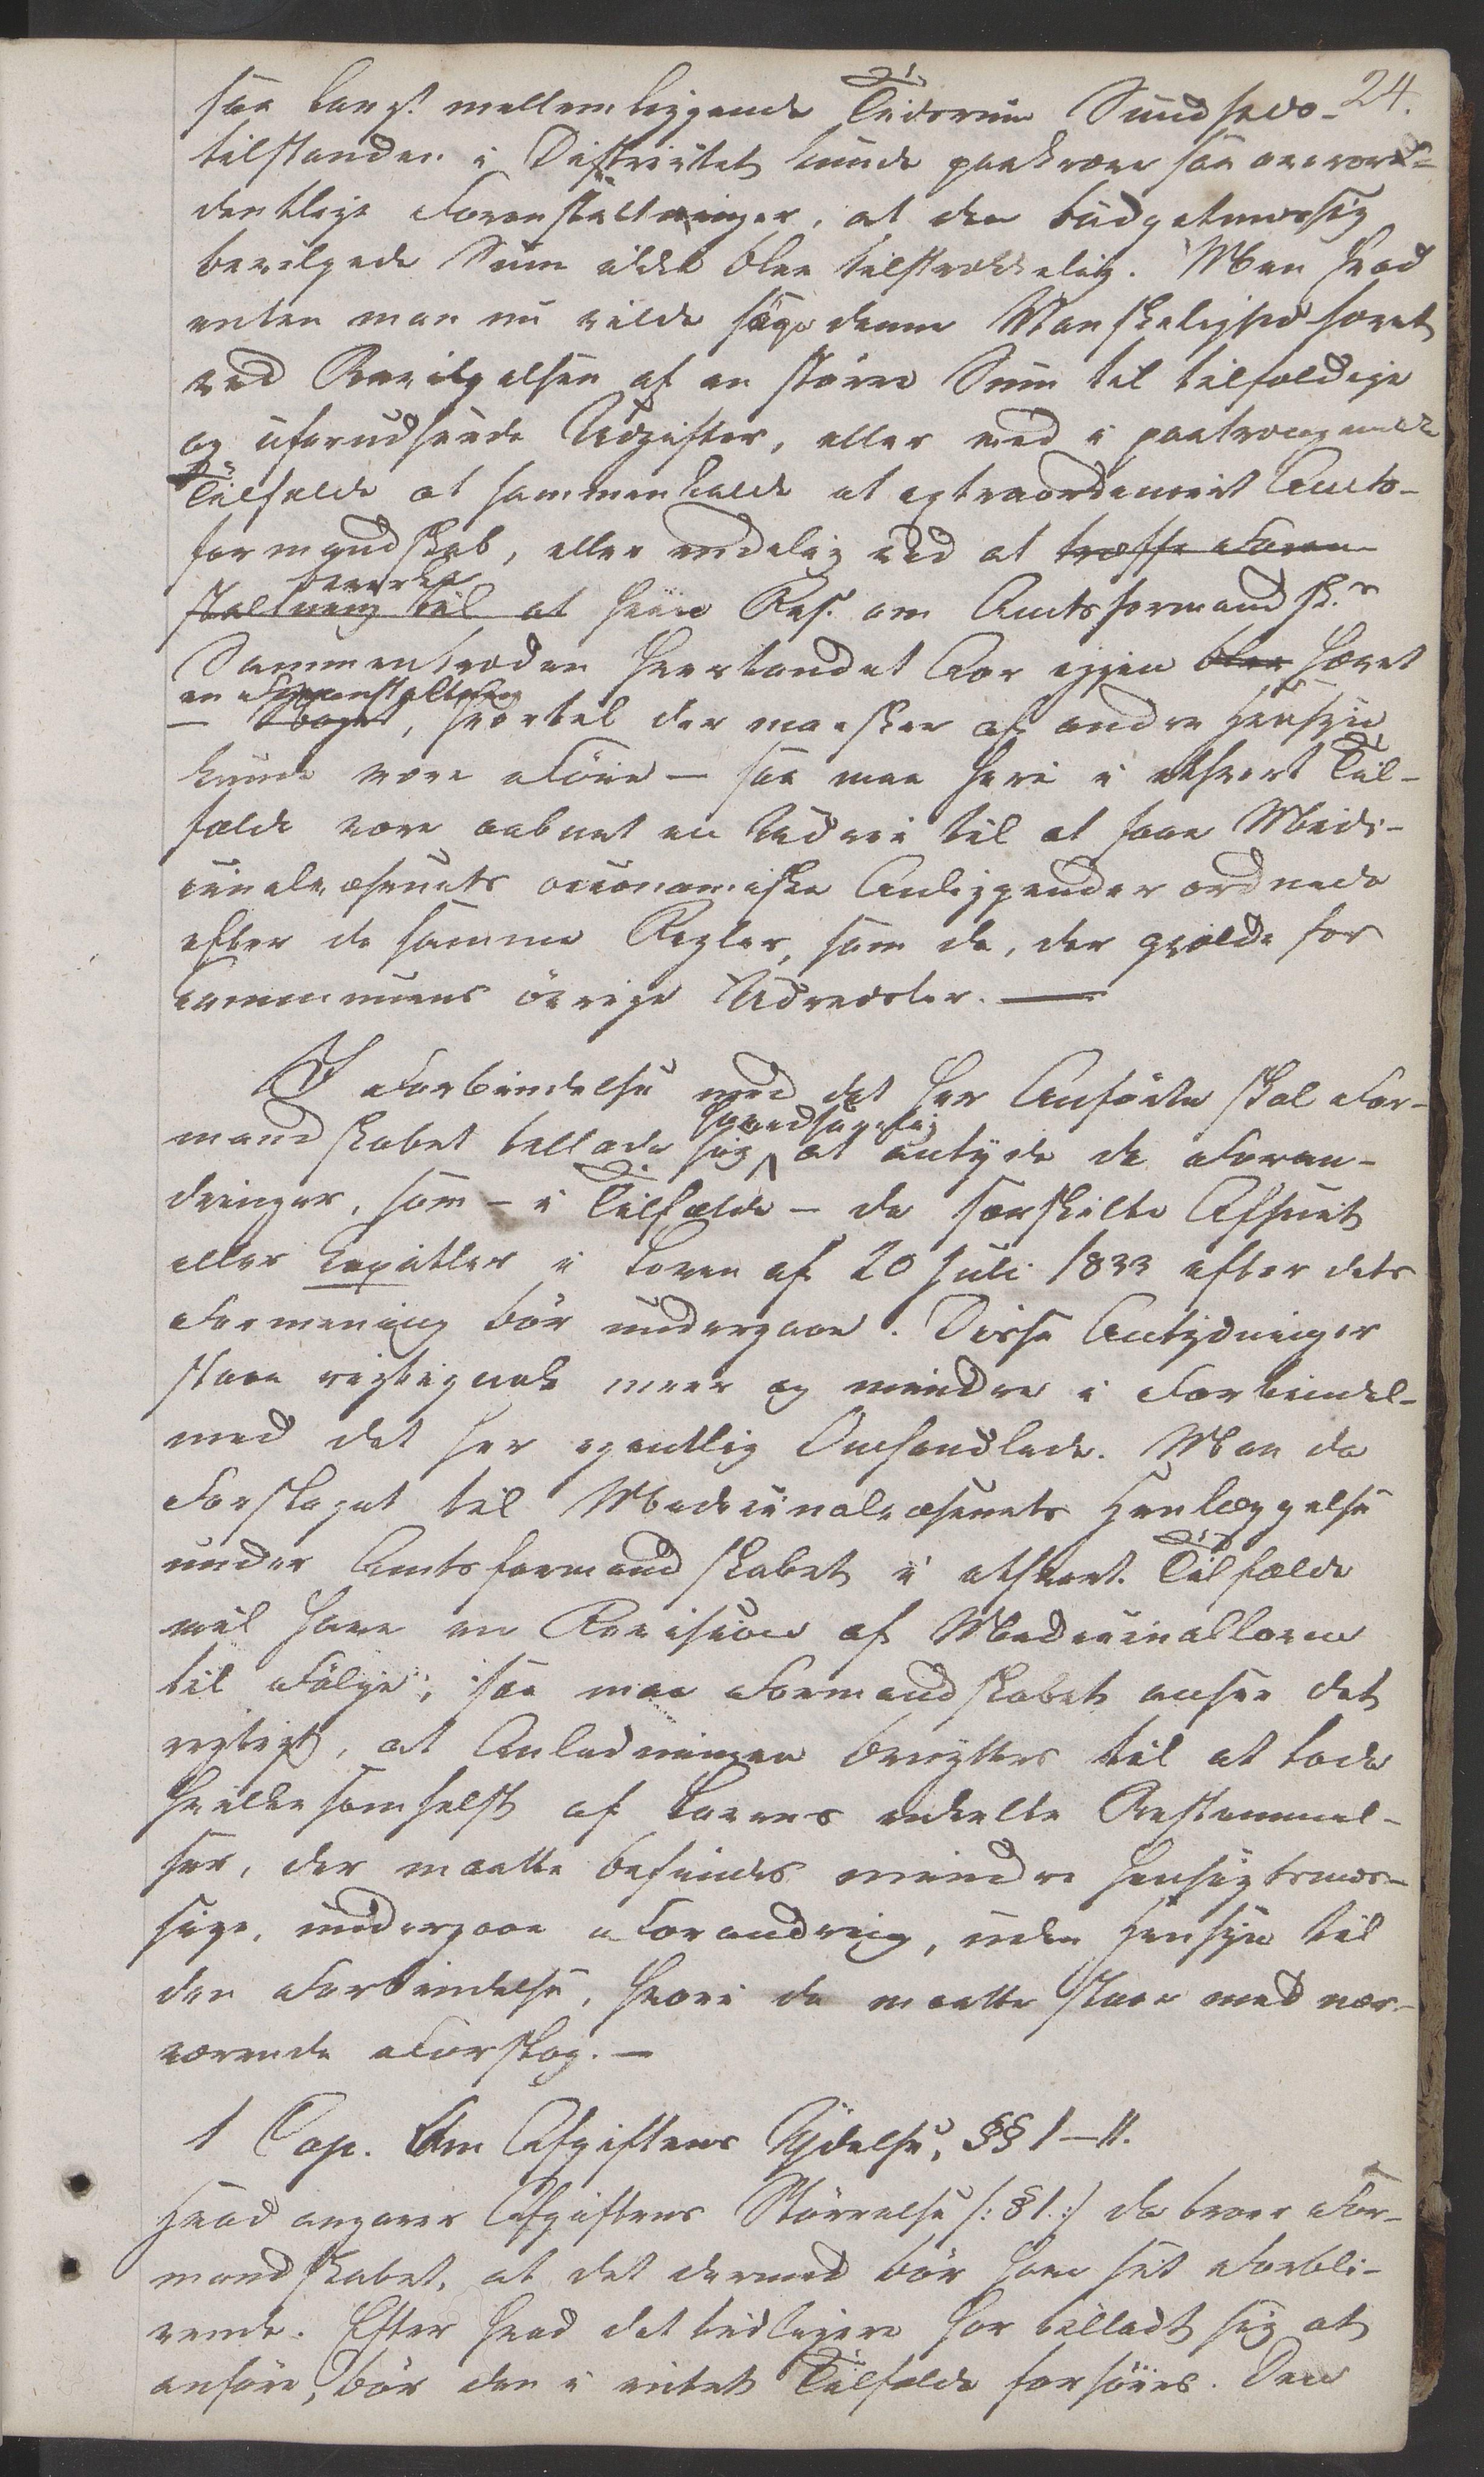 24.
saa langt mellemliggende Tidsrum Sundheds-
tilstanden i Districtet kunde paakræve saa overor-
dentlige Foranstaltninger, at den budgetmæssig
bevilgede Sum ikke blev tilstrækkelig. Men hvad
enten man nu vilde søge denne Vanskelighed hævet
ved Bevilgelsen af en større Sum til tilfældige
og uforudseede Udgifter, eller ved i paatrængende
Tilfælde at sammenkalde et extraordinairt Amts-
formandskab, eller endelig ved at træffe Foran-
staltning til at bevirke hiin Res. om Amtsformandsk.s
Sammentræden hvertandet Aar igjen blev hævet
– en Foranstaltning, hvortil der maaskee af andre Hensyn
kunde være Føie – saa maa heri i ethvert Til-
fælde være aabnet en Udvei til at faae Medi-
cinalvæsenets oeconomiske Anliggender ordnede
efter de samme Regler, som de, der gjælde for
Communens øvrige Udredsler. —
I Forbindelse med det her Anførte skal For-
mandskabet tillade sig hovedsagelig at antyde de Foran-
dringer, som – i Tilfælde – de særskilte Afsnit
eller Capitler i Loven af 20 Juli 1833 efter dets
Formening bør undergaae. Disse Antydninger
staae rigtignok meer og mindre i Forbindel-
med det her egentlig Omhandlede. Men da
Forslaget til Medicinalvæsenets Henlæggelse
under Amtsformandskabet i ethvert Tilfælde
vil have en Revision af Medicinalloven
til Følge, saa maa Formandskabet ansee det
rigtigt, at Anledningen benyttes til at lade
hvilkesomhelst af Lovens enkelte Bestemmel-
ser, der maatte befindes mindre hensigtsmæs-
sige, undergaae Forandring, uden Hensyn til
den Forbindelse, hvori de maatte staae med nær-
værende Forslag. —
1 Cap. Om Afgiftens Ydelse, §§ 1–11.
Hvad angaaer Afgiftens Størrelse /: § 1 :/ da troer For-
mandskabet, at det dermed bør have sit Forbli-
vende. Efter hvad det tidligere har tilladt sig at
anføre, bør den i intet Tilfælde forhøies. Den